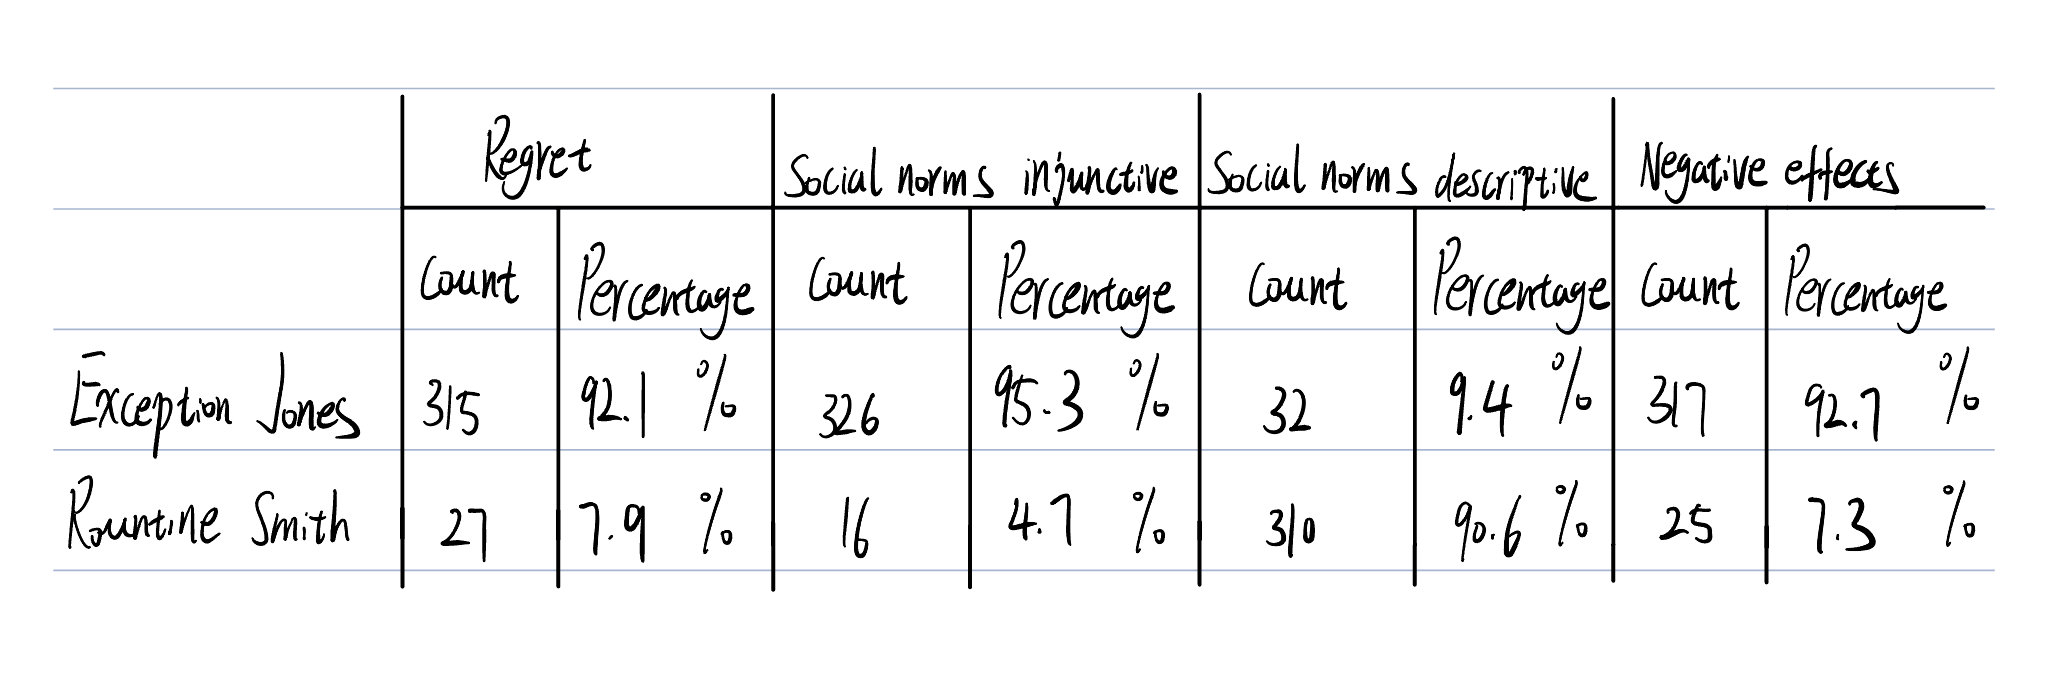 Regret Social norms injunctive Social norms descriptive Negative effects
Count Percentage Count Percentage Count Percentage Count Percentage
Exception Jones 315 92.1 % 326 95.3 % 32 9.4 % 317 92.7 %
Rountine Smith 27 7.9 % 16 4.7 % 310 90.6 % 25 7.3 %